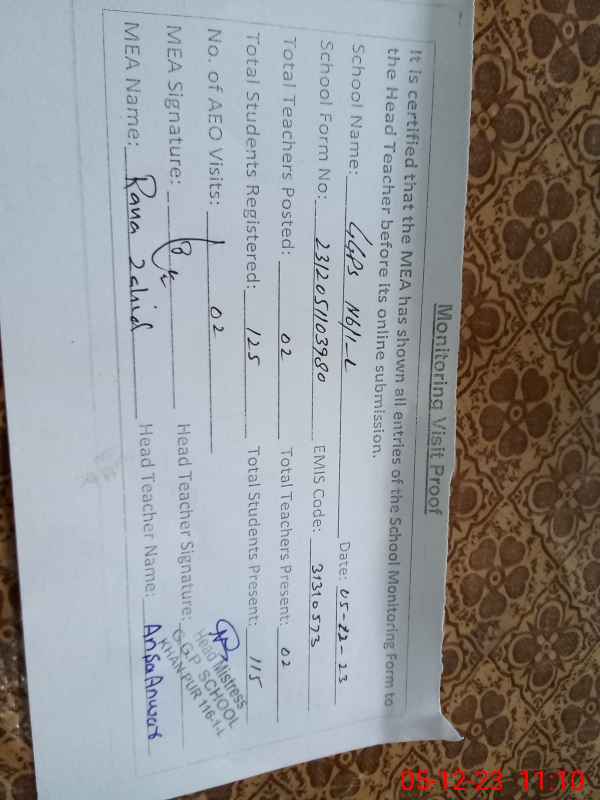 Monitoring Visit Proof
It is certified that the MEA has shown all entries of the School Monitoring Form to
the Head Teacher before its online submission.
School Name: GGPS Date: 05-12-23
School Form No: 2312051103980 EMIS Code: 31310573
Total Teachers Posted: 02 Total Teachers Present: 02
Total Students Registered: 125 Total Students Present: 115
No. of AEO Visits: 02
MEA Signature: Head Teacher Signature:
Head Mistress
G.G.P SCHOOL
KHANPUR 116-1-L
MEA Name: Rana Zahid Head Teacher Name: Ansa Anwar
05-12-23 11:10